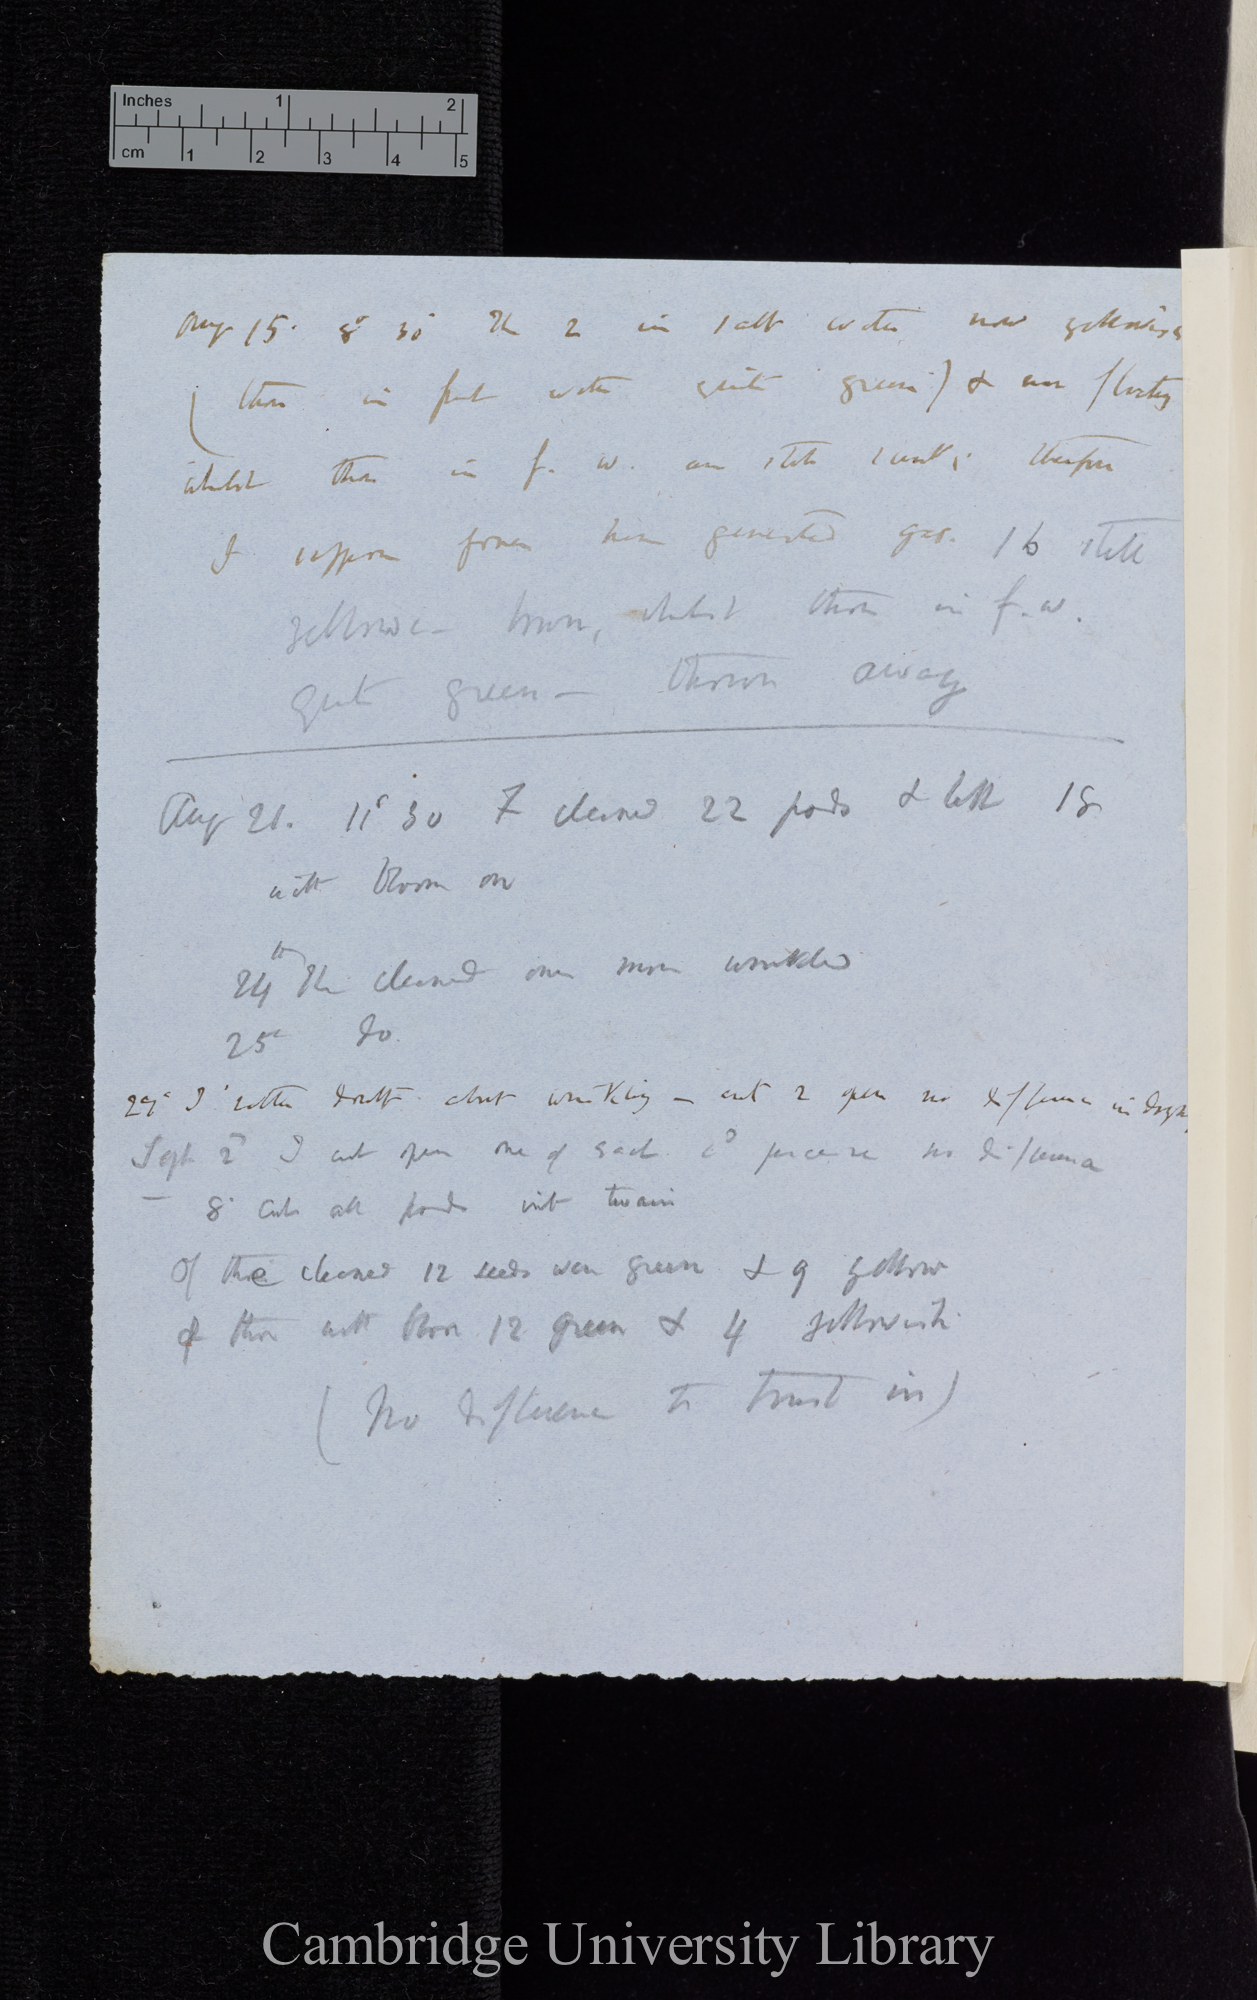 Inches 1 2
cm 1 2 3 4 5
Aug 15. 8° 30' The 2 in salt water now yellowish
(those in fresh water quite green) & now floating
whilst those in f. w. are still sunk; therefore
I suppose former have generated gas. 16 still
yellow– brown, whilst those in f. w.
quite green — thrown away
Aug 21. 11° 30 F cleaned 22 pods & left 18
with bloom on
24th The cleaned ones more wrinkled
25th do.
29th I rather doubt about wrinkling — cut 2 open no difference in
Sept 2d I cut open one of each cd perceive no difference
— 8. Cut all pods into twain
Of the cleaned 12 seeds were green & 9 yellow
of those with bloom 12 green & 4 yellowish.
(No difference to trust in)
Cambridge University Library